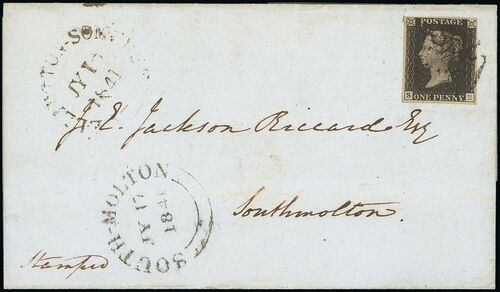 JY 1
1841
POSTAGE
S
ONE PENNY
J. E. Jackson Riccard Esq
SOUTH-MOLTON
JY 17
1841
Southmolton
Stamped